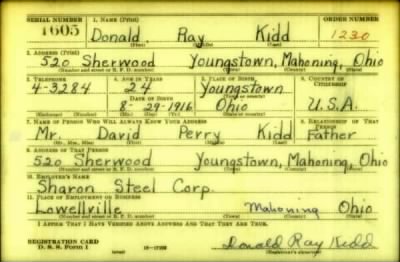 SERIAL NUMBER 1. NAME (Print) ORDER NUMBER
1605 Donald Ray Kidd 1230
(First) (Middle) (Last)
2. ADDRESS (Print)
520 Sherwood Youngstown, Mahoning, Ohio
(Number and street or R. F. D. number) (Town) (County) (State)
3. TELEPHONE 4. AGE IN YEARS 5. PLACE OF BIRTH 6. COUNTRY OF CITIZENSHIP
4-3284 24 Youngstown
DATE OF BIRTH (Town or county)
8-29-1916 Ohio U.S.A.
7. NAME OF PERSON WHO WILL ALWAYS KNOW YOUR ADDRESS 8. RELATIONSHIP OF THAT PERSON
Mr. David Perry Kidd Father
(Mr., Mrs., Miss) (First) (Middle) (Last)
9. ADDRESS OF THAT PERSON
520 Sherwood Youngstown, Mahoning, Ohio
(Number and street or R. F. D. number) (Town) (County) (State)
10. EMPLOYER'S NAME
Sharon Steel Corp.
11. PLACE OF EMPLOYMENT OR BUSINESS
Lowellville Mahoning Ohio
(Number and street or R. F. D. number) (Town) (County) (State)
I AFFIRM THAT I HAVE VERIFIED ABOVE ANSWERS AND THAT THEY ARE TRUE.
REGISTRATION CARD
D. S. S. Form 1 Donald Ray Kidd
(Registrant's signature)